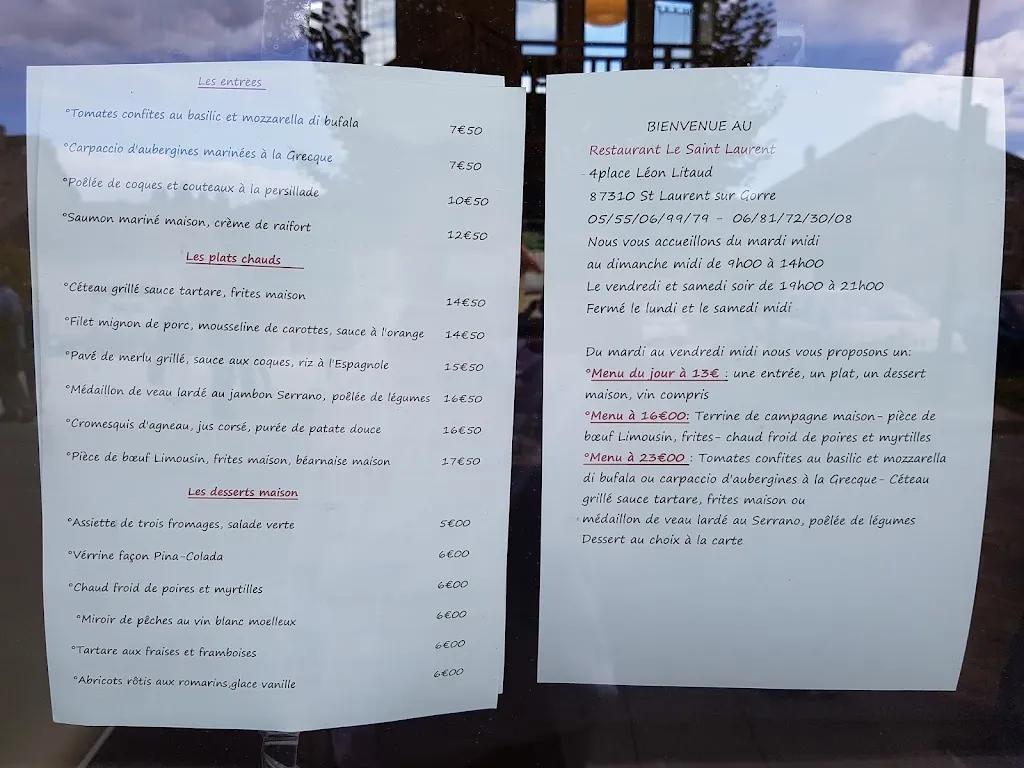 Les entrées
°Tomates confites au basilic et mozzarella di bufala 7€50
°Carpaccio d'aubergines marinées à la Grecque 7€50
°Poêlée de coques et couteaux à la persillade 10€50
°Saumon mariné maison, crème de raifort 12€50
Les plats chauds
°Céteau grillé sauce tartare, frites maison 14€50
°Filet mignon de porc, mousseline de carottes, sauce à l'orange 14€50
°Pavé de merlu grillé, sauce aux coques, riz à l'Espagnole 15€50
°Médaillon de veau lardé au jambon Serrano, poêlée de légumes 16€50
°Cromesquis d'agneau, jus corsé, purée de patate douce 16€50
°Pièce de bœuf Limousin, frites maison, béarnaise maison 17€50
Les desserts maison
°Assiette de trois fromages, salade verte 5€00
°Vérrine façon Pina-Colada 6€00
°Chaud froid de poires et myrtilles 6€00
°Miroir de pêches au vin blanc moelleux 6€00
°Tartare aux fraises et framboises 6€00
°Abricots rôtis aux romarins,glace vanille 6€00
BIENVENUE AU
Restaurant Le Saint Laurent
4place Léon Litaud
87310 St Laurent sur Gorre
05/55/06/99/79 - 06/81/72/30/08
Nous vous accueillons du mardi midi
au dimanche midi de 9h00 à 14h00
Le vendredi et samedi soir de 19h00 à 21h00
Fermé le lundi et le samedi midi
Du mardi au vendredi midi nous vous proposons un:
°Menu du jour à 13€ : une entrée, un plat, un dessert
maison, vin compris
°Menu à 16€00: Terrine de campagne maison- pièce de
bœuf Limousin, frites- chaud froid de poires et myrtilles
°Menu à 23€00 : Tomates confites au basilic et mozzarella
di bufala ou carpaccio d'aubergines à la Grecque- Céteau
grillé sauce tartare, frites maison ou
médaillon de veau lardé au Serrano, poêlée de légumes
Dessert au choix à la carte